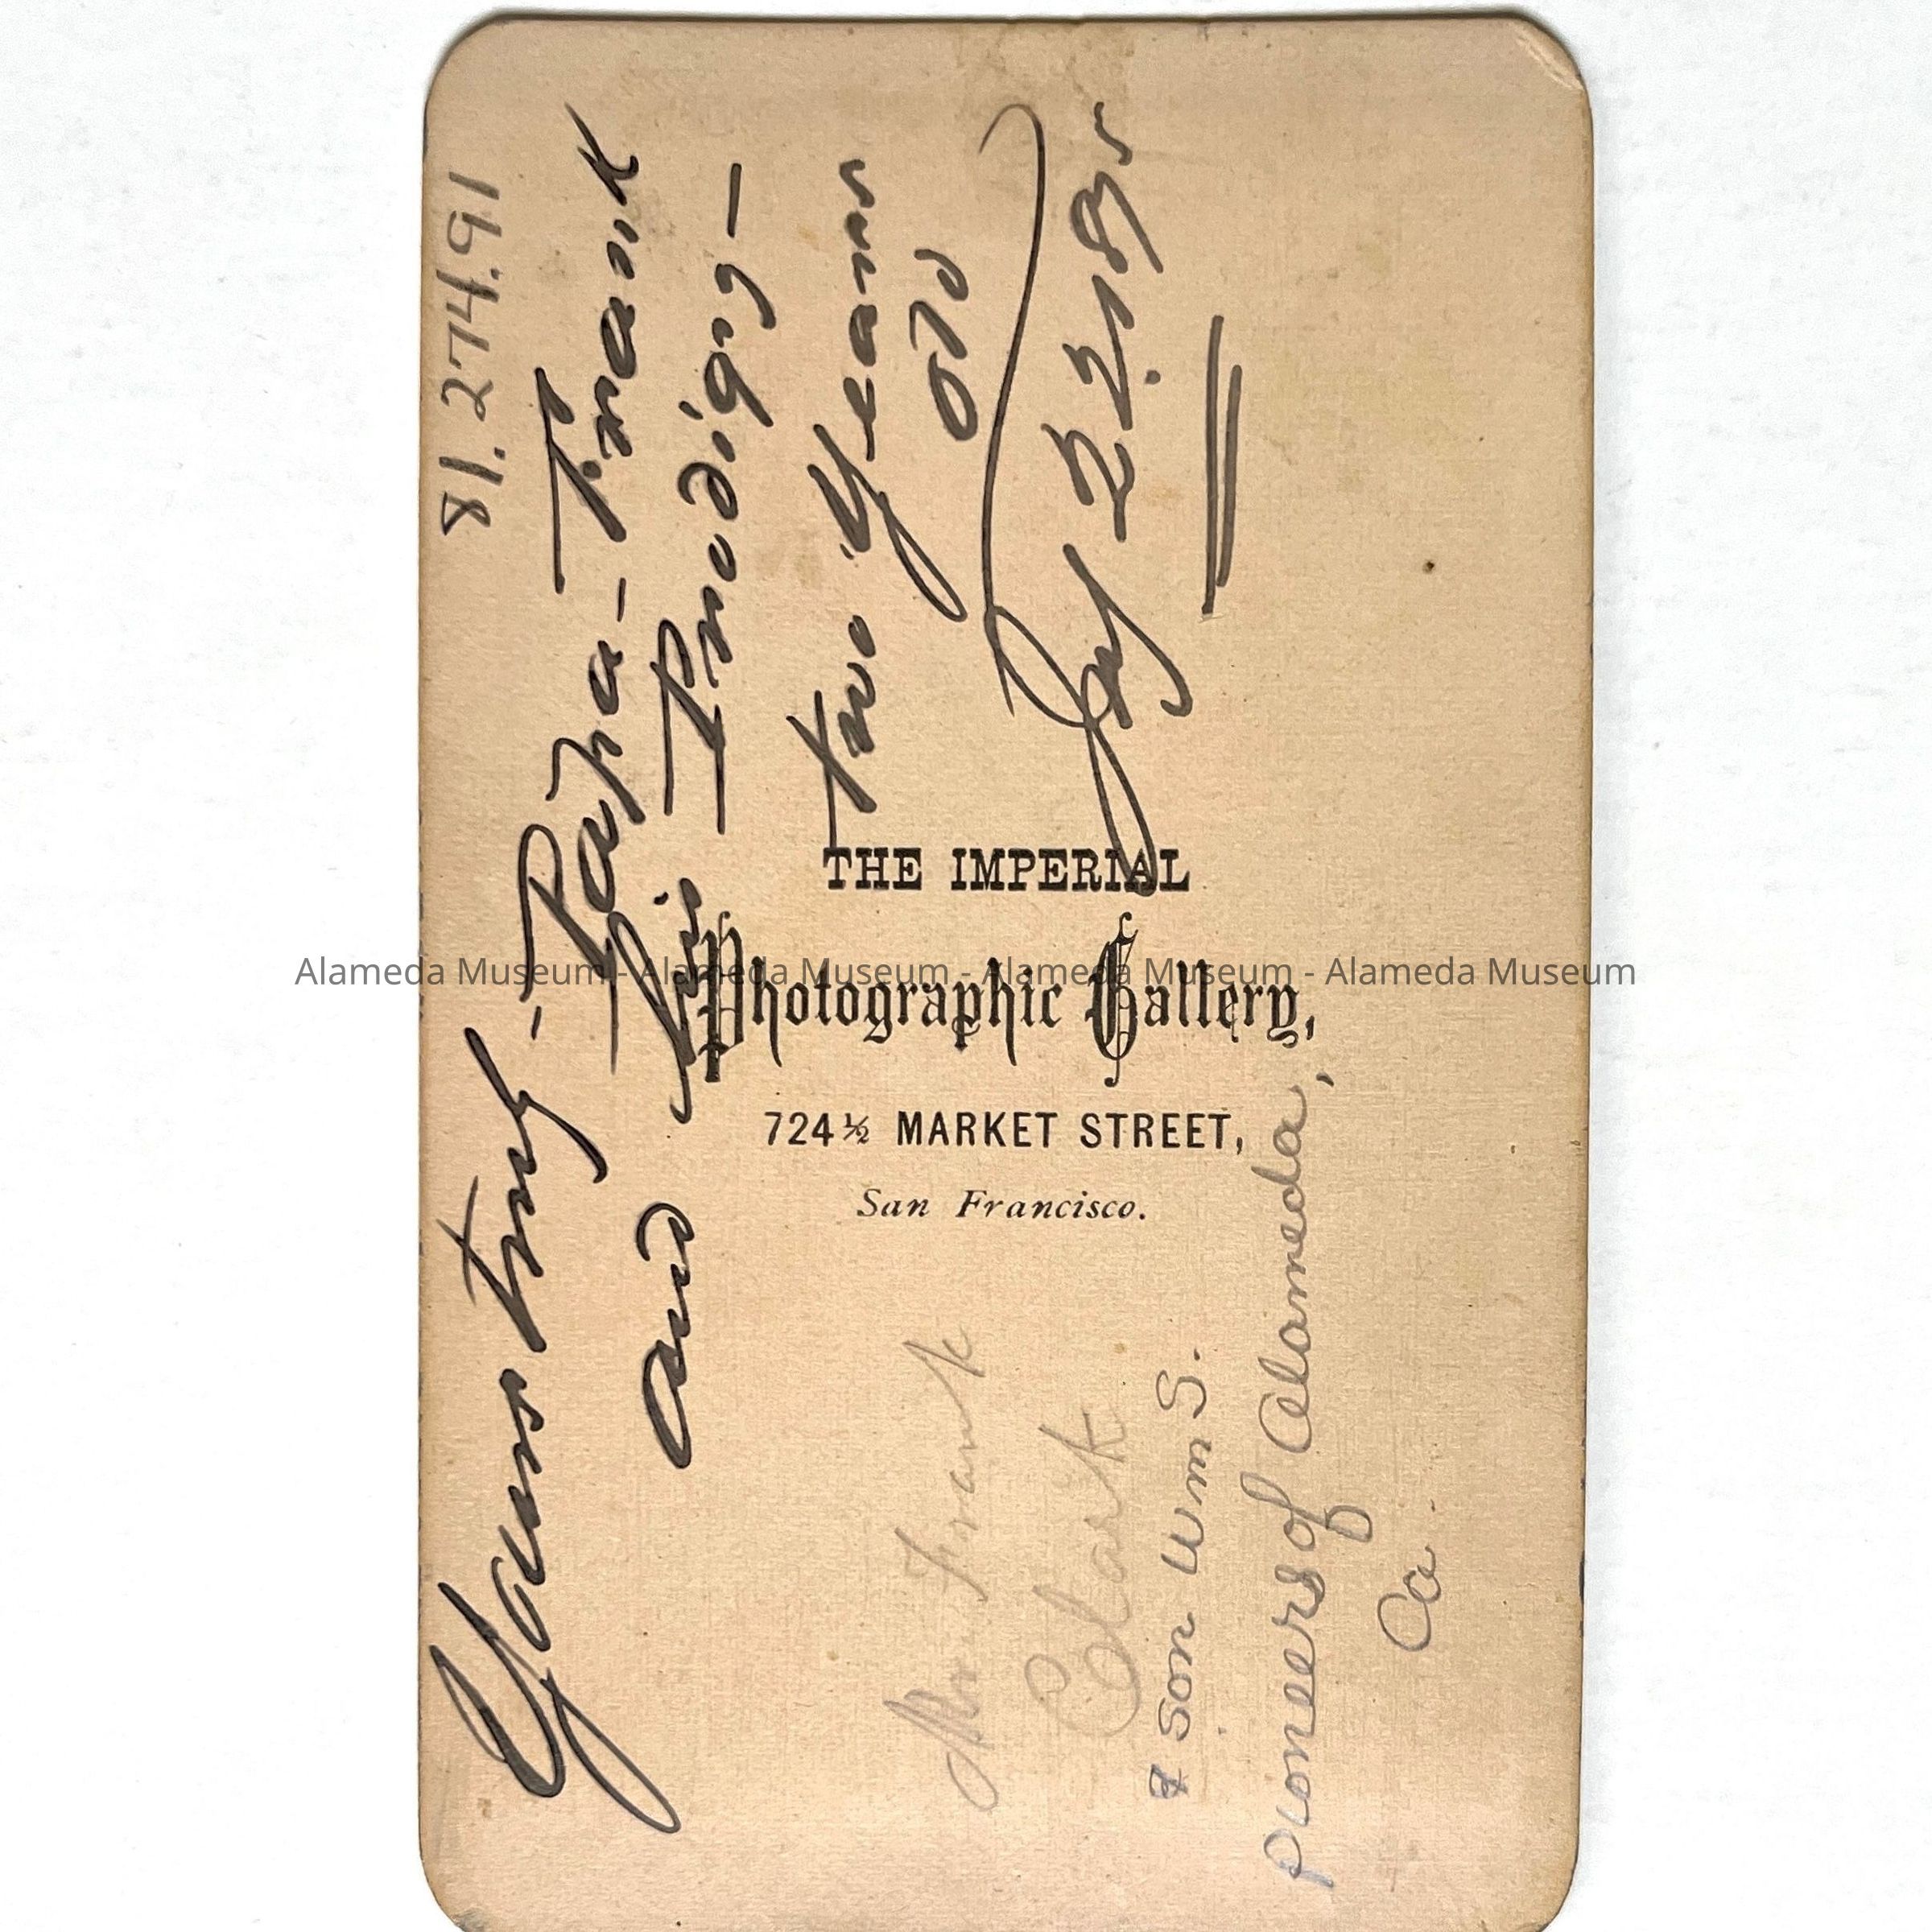 81.274.91
Yours truly -
Papa - Frank
and his Prodigy -
two years
old
22.
THE IMPERIAL
Photographic Gallery,
724½ MARKET STREET,
San Francisco.
Mr. Frank
Clark
& son Wm S.
pioneers of Alameda,
Ca.
Alameda Museum - Alameda Museum - Alameda Museum - Alameda Museum